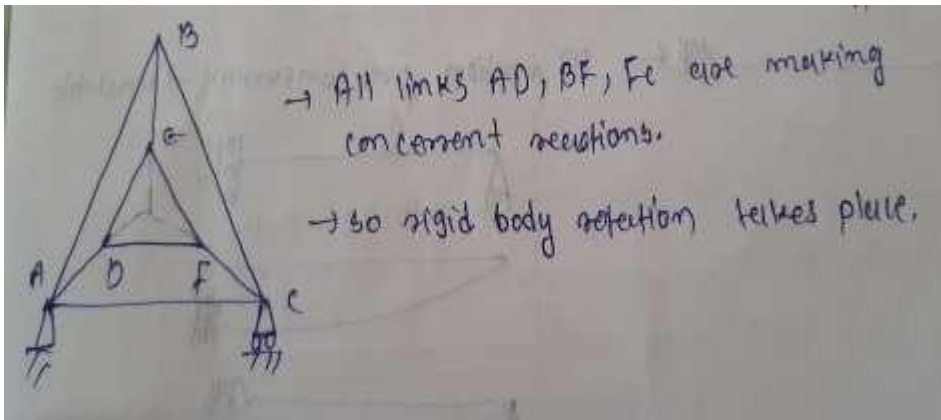 B
→ All links AD, BF, FC are making
concerrent reactions.
E
→ so rigid body rotation takes place.
A
D
F
C